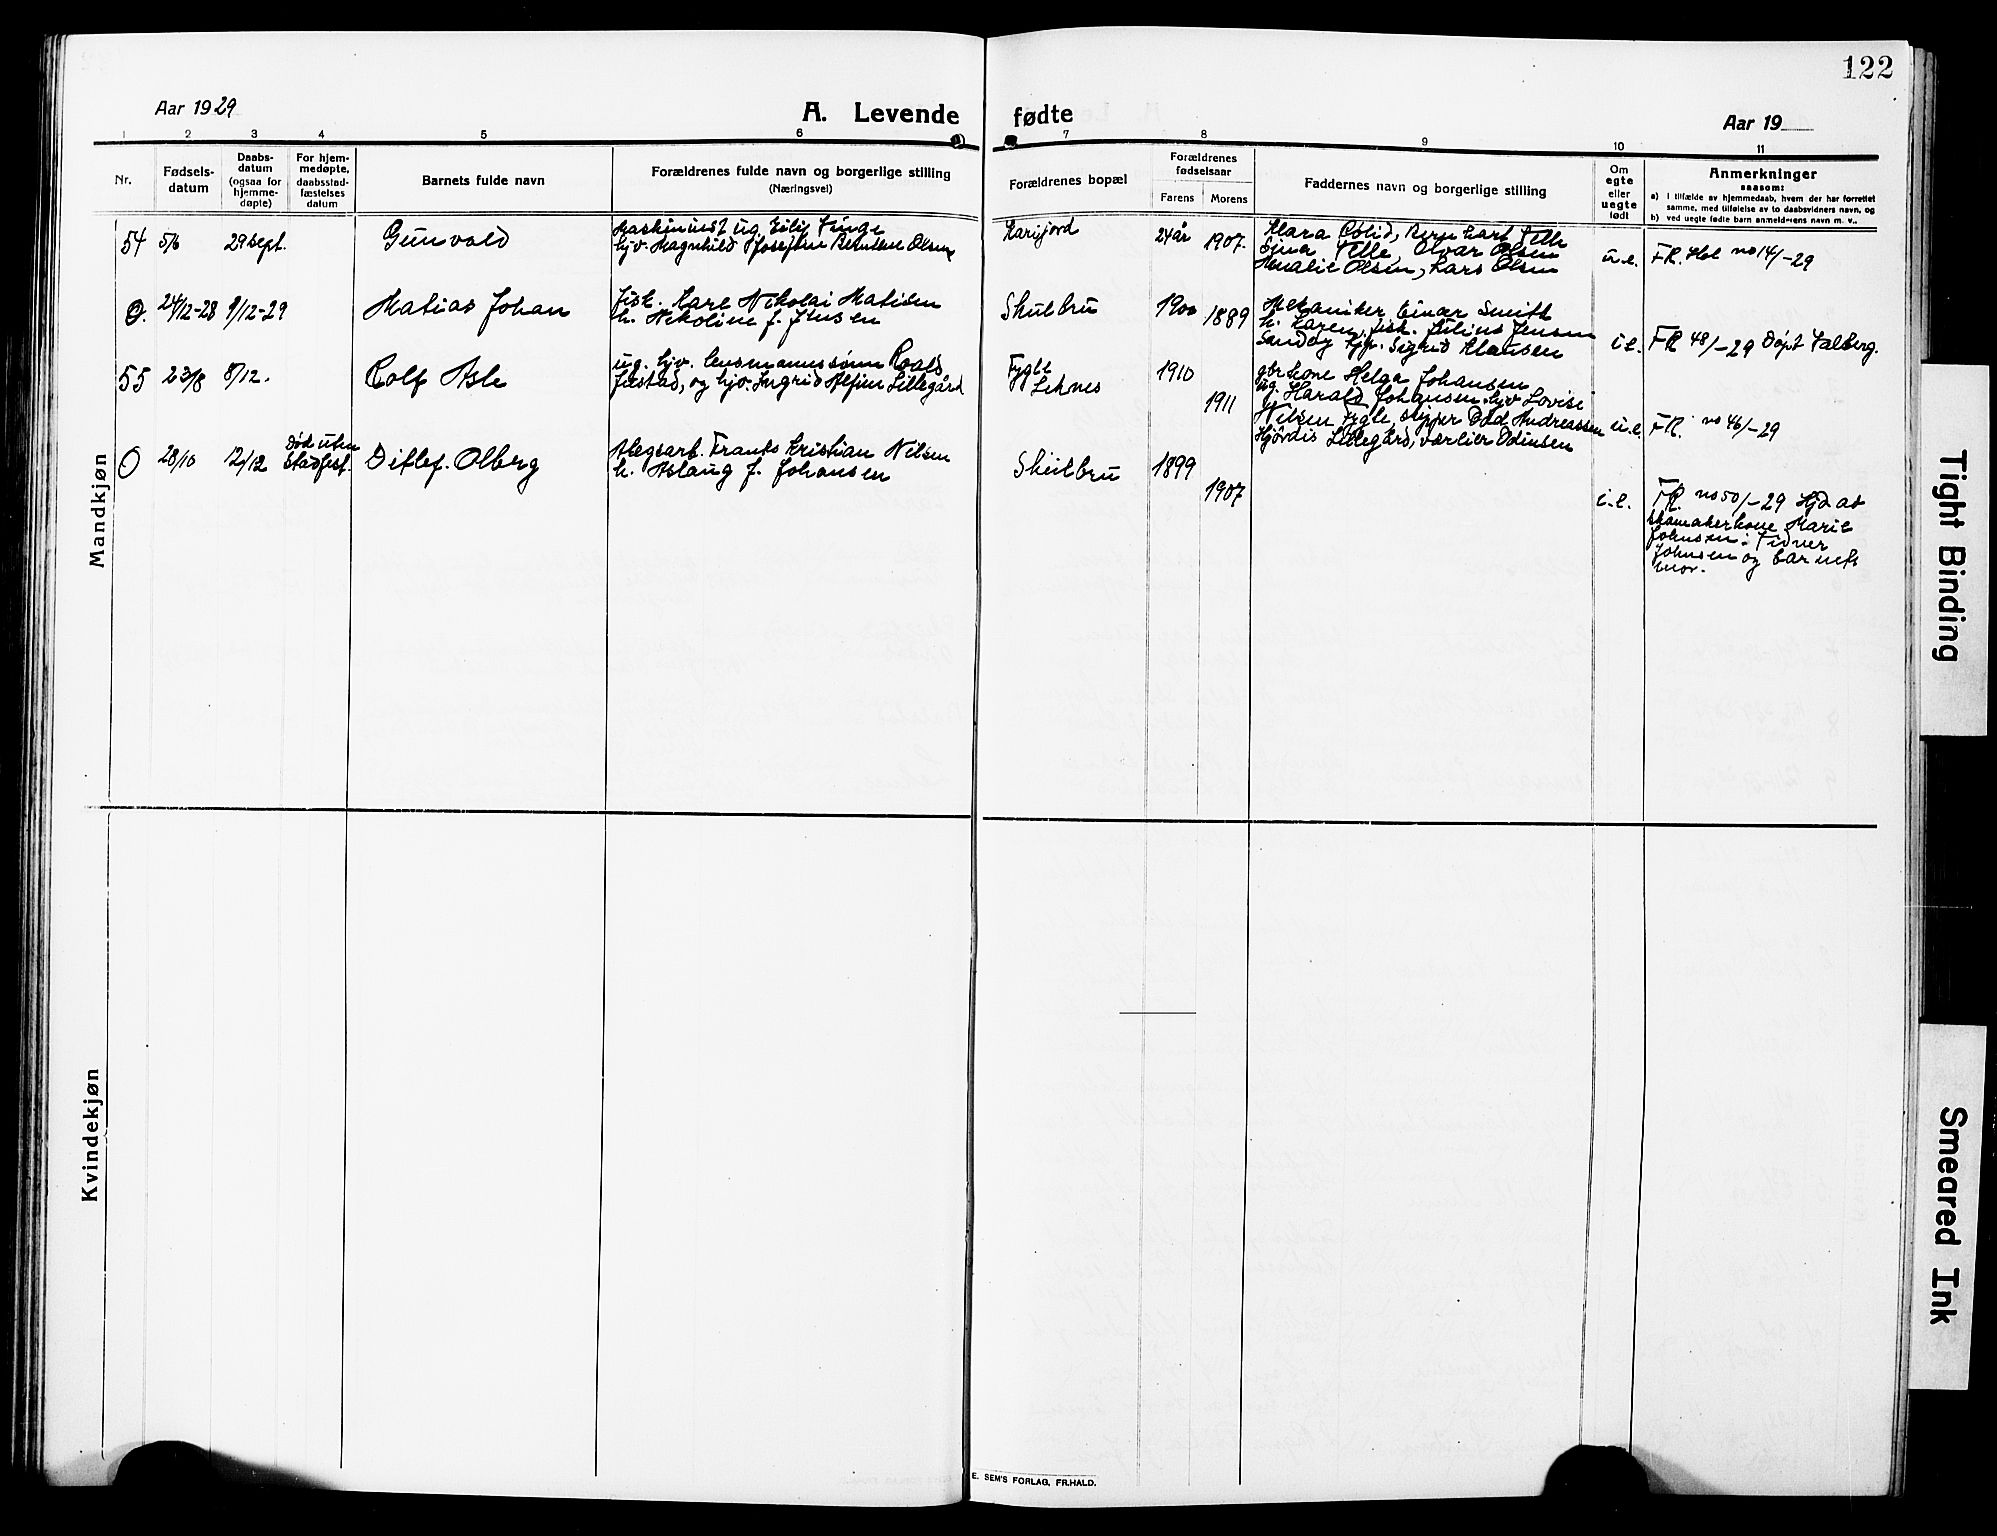 122
Aar 1929
A. Levende fødte
Aar 19
1 2 3 4 5 6 7 8 9 10 11
Nr.
Fødsels-
datum
Daabs-
datum
(ogsaa for
hjemme-
døpte)
For hjem-
medøpte,
daabsstad-
fæstelses
datum
Barnets fulde navn
Forældrenes fulde navn og borgerlige stilling
(Næringsvei)
Forældrenes bopæl
Forældrenes
fødselsaar
Farens Morens
Faddernes navn og borgerlige stilling
Om
egte
eller
uegte
født
Anmerkninger
saasom:
a) i tilfælde av hjemmedaab, hvem der har forrettet
samme, med tilføielse av to daabsvidners navn, og
b) ved uegte fødte barn anmelderens navn m. v..
Mandkjøn
54 5/6 29 sept. Gunvold
Maskininist ug. Eilif Finge
hjv. Magnhild Josefine Berntine Olsen
24 år 1907.
Klara Bernhart Telle
Telle, Olvar Olsen
Olsen, Lars Olsen
u.e.
FR. no 14/-29
O. 24/12-28 9/12-29
Matias Johan
fisk. Karl Nikolai Matisen
h. Nikoline f. Jensen
Skulbru
1900 1889
Mekaniker Einar Smith
h. Karen, fisk. Julius Jensen
Sandøy hjv. Sigrid Klausen
i.e.
FR 48/-29 Døpt Valberg.
55 23/8 8/12.
Rolf Asle
ug. hjv. lensmannssønn Roald
Justad, og hjv. Ingrid Alfine Lillegård
Fygle
Leknes
1910
1911
gbr kone Helga Johansen
ug. Harald Johansen, hjv. Lovise
Nilsen Fygle, skipper Andreassen
Hjørdis Lillegård, Odinsen
u.e.
FR. no 46/-29
O 28/10 12/12
død uten
stadfest.
Ditlef. Olberg
Frants Kristian Nilsen
h. Aslaug f. Johansen
Skulbru
1899
1907
i.e.
FR. no 50/-29 Hjd. av
skomakerkone Marie
Johnsen: Tidner
Johnsen og barnets
mor.
Kvindekjøn
E. SEM'S FORLAG, FR.HALD.
Tight Binding
Smeared Ink